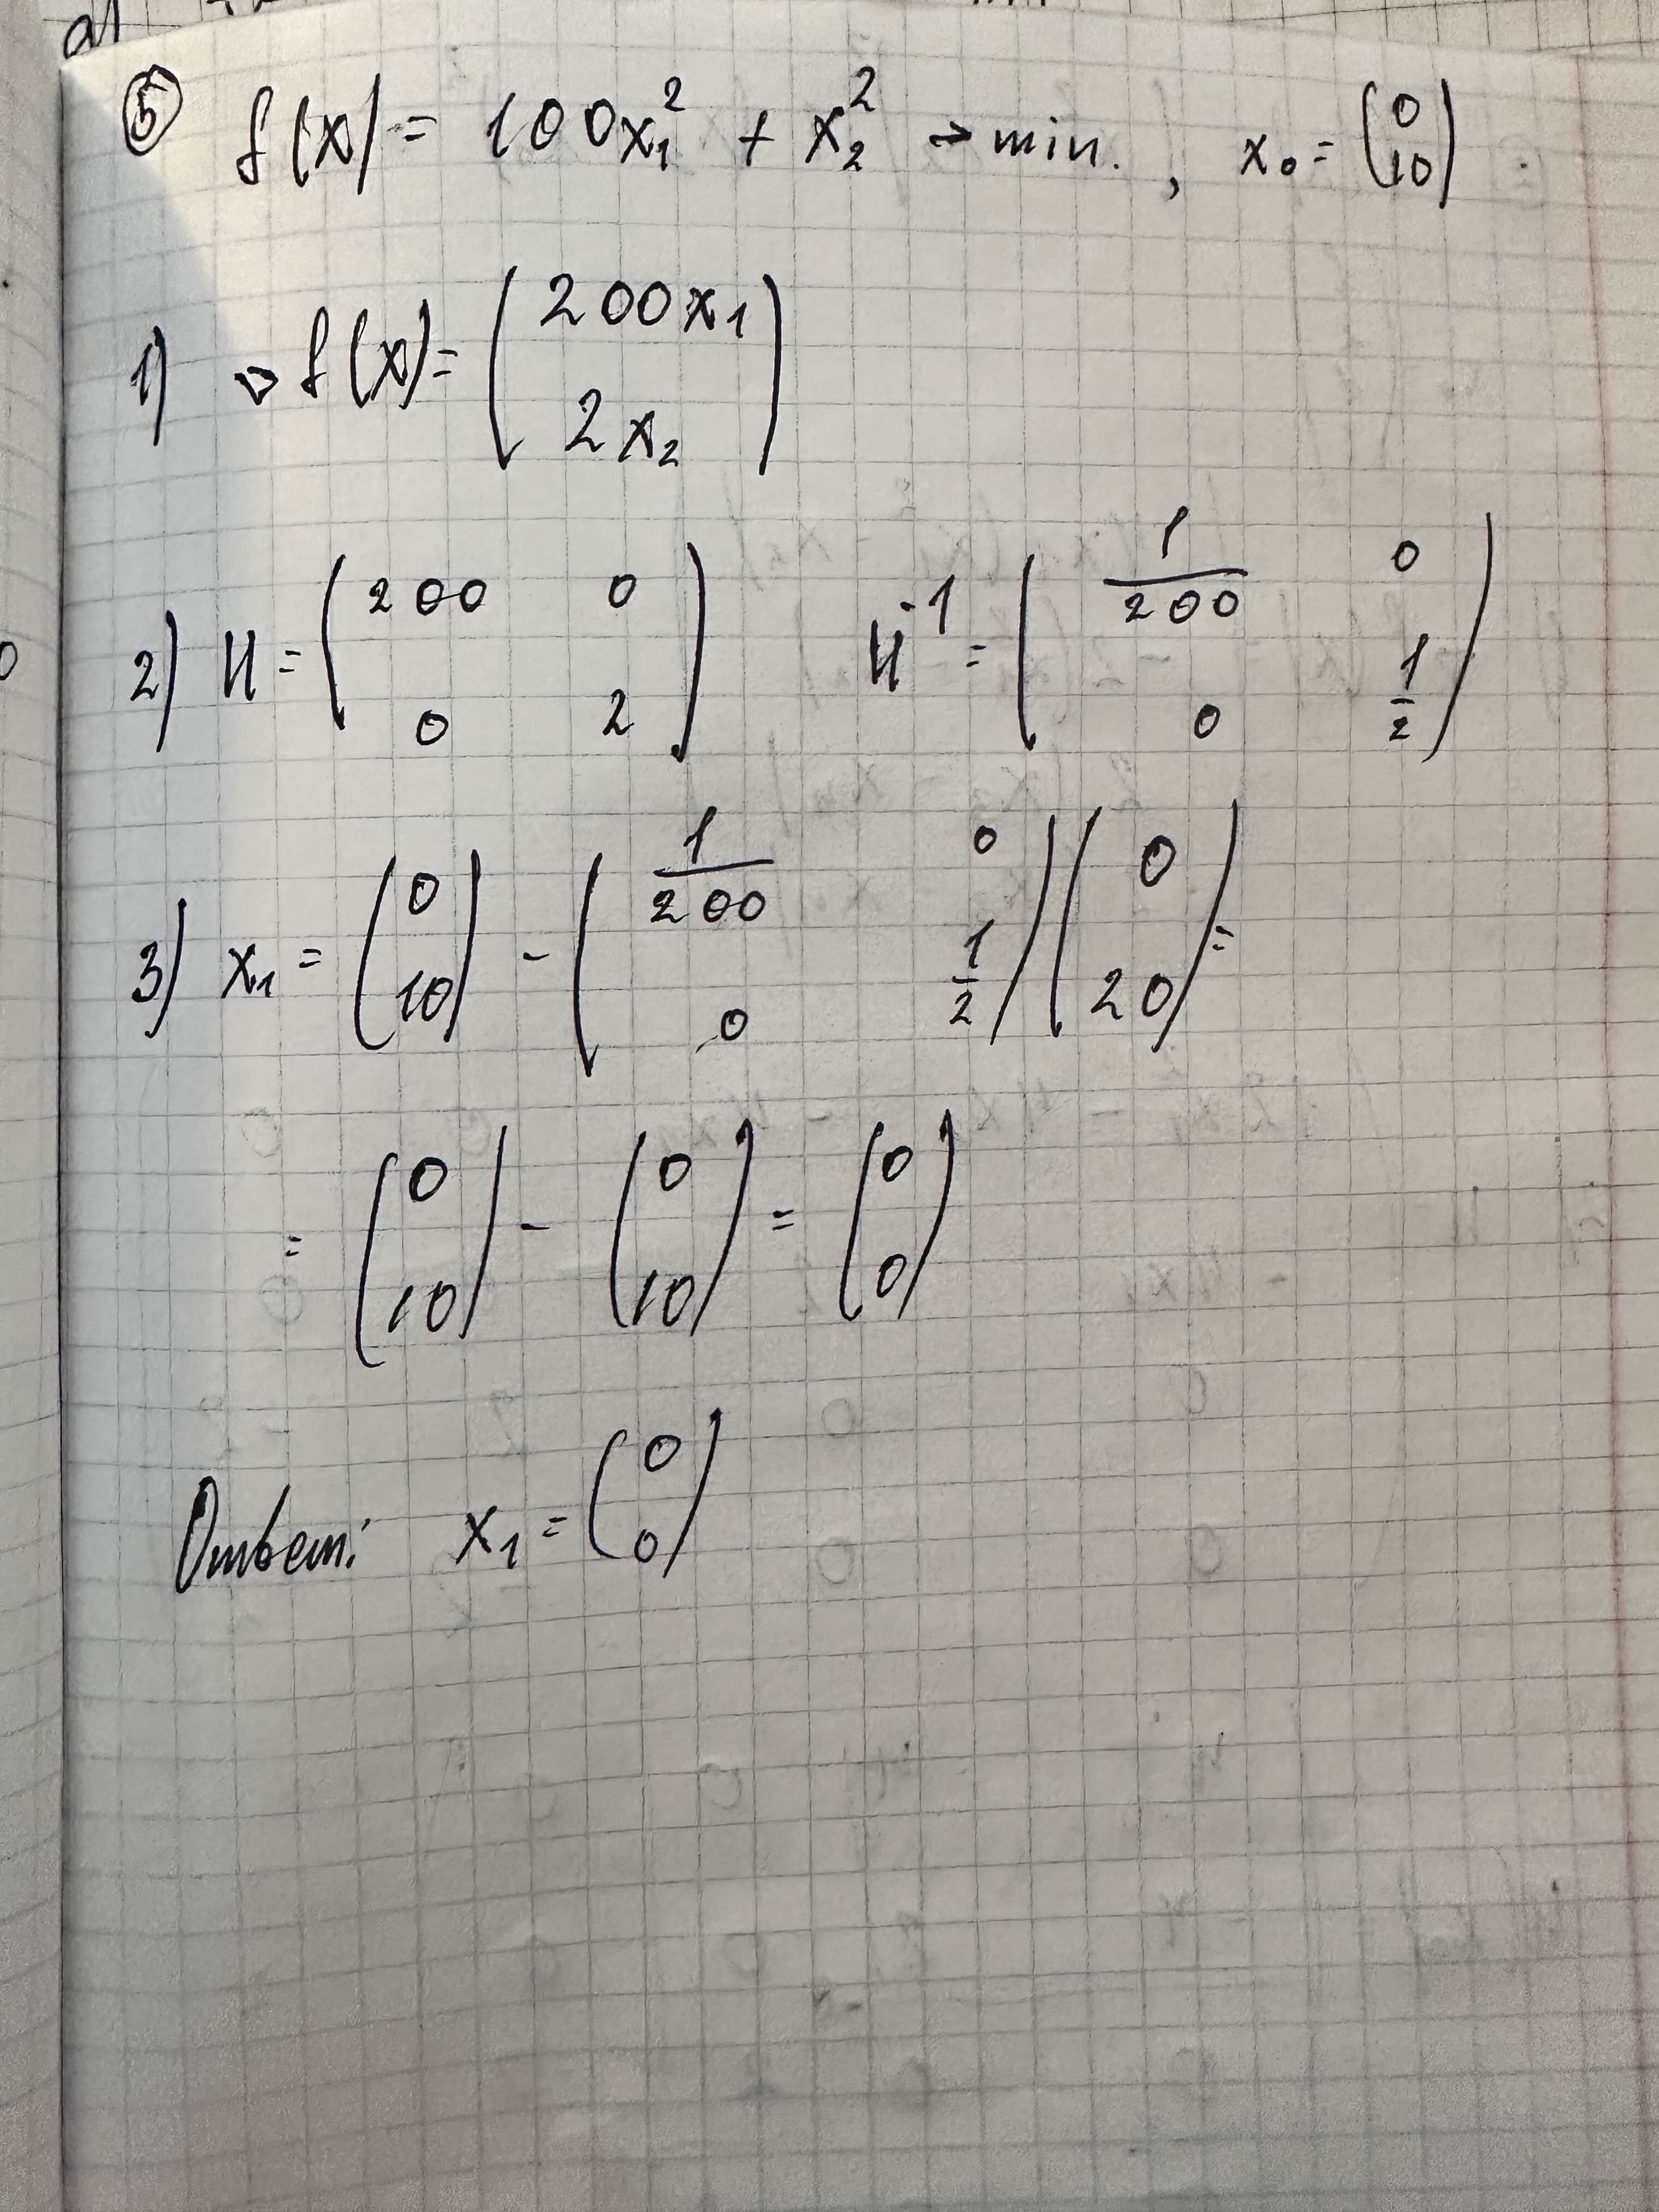 ⑤ f(x) = 100x₁² + x₂² → min. , x₀ = (0 10)
1) ▽f(x) = (200x₁ 2x₂)
2) H = (200 0 0 2) H⁻¹ = (1/200 0 0 1/2)
3) x₁ = (0 10) - (1/200 0 0 1/2)(0 20) =
= (0 10) - (0 10) = (0 0)
Ответ: x₁ = (0 0)